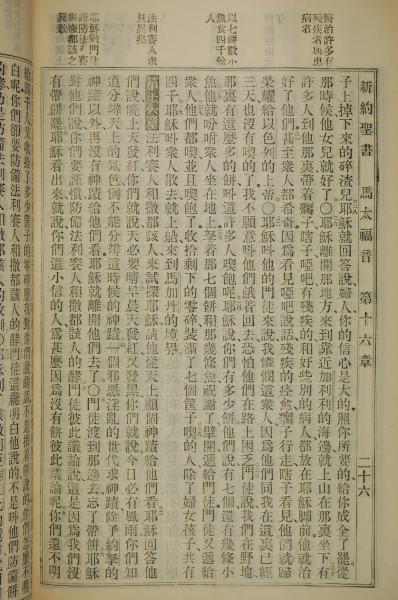 新約聖書　馬太福音　第十六章　二十六
子上掉下來的碎渣兒耶穌就回答說婦人你的信心是大的照你所要的給你成全了罷從
那時候他女兒就好了○耶穌離開那地方來到靠近加利利的海邊就上山在那裏坐下有
許多人到他那裏帶着瘸子瞎子啞吧有殘疾的和好些別的病人都放在耶穌脚前他就治
好了他們甚至衆人都希奇因爲看見啞吧說話殘疾的痊愈瘸子行走瞎子看見他們就歸
榮耀給以色列的上帝○耶穌呌他的門徒來說我憐憫這衆人因爲他們同我在這裏已經
三天也沒有喫的了我不願意呌他們餓着回去恐怕他們在路上困乏門徒說我們在野地
那裏有這麽多的餅呌這許多人喫飽呢耶穌說你們有多少餅他們說有七個還有幾條小
魚他就吩咐衆人坐在地上拿着那七個餅和那幾條魚祝謝了擘開遞給門徒門徒又遞給
衆人他們都喫並且喫飽了收拾剩下的零碎裝滿了七個筐子喫的人除了婦女孩子共有
四千耶穌呌衆人散去就上船來到馬加丹的境界
第十六章法利賽人和撒都該人來試探耶穌請他從天上顯個神蹟給他們看耶穌回答他
們說晚上天發紅你們就說天必要晴早晨天發紅又發黑你們就說今日必有風雨你們知
道分辨天上的氣色倒不能分辨這時候的神蹟一個邪惡淫亂的世代求神蹟除了約拏的
神蹟以外再沒有神蹟給他們看耶穌就離開他們去了○門徒渡到那邊去忘了帶餅耶穌
對他們說你們要謹慎防備法利賽人和撒都該人的酵門徒彼此議論說這是因爲我們沒
有帶餅罷耶穌看出來就說你們這小信的人爲甚麽因爲沒有餅彼此議論呢你們還不明
白呢你們卻要防備法利賽人和撒都該人的酵門徒這纔明白他說的不是呌他們防備餅
醫治許多有
殘疾者與患
病者
以七餅數小
魚食四千餘
人
法利賽人求
異兆
耶穌戒門徒
謹防法利賽
與撒都該之
異教